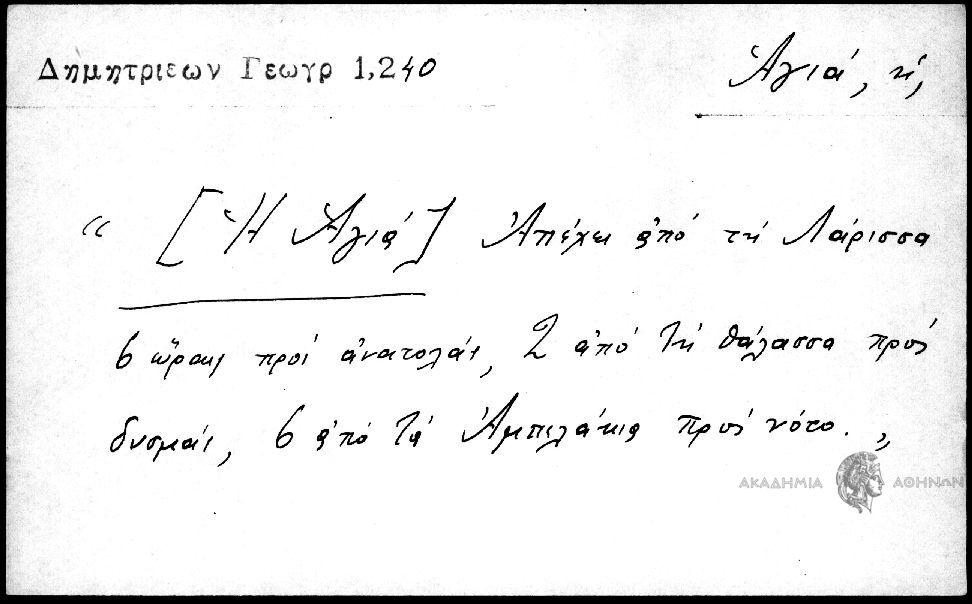 Δημητριεων Γεωγρ 1,240
Ἁγιά, ἡ,
“ [Ἡ Ἁγιά] Ἀπέχει ἀπό τή Λάρισσα
6 ὥραις πρός ἀνατολάς, 2 ἀπό τή θάλασσα πρός
δυσμάς, 6 ἀπό τά Ἀμπελάκια πρός νότο. „
ΑΚΑΔΗΜΙΑ ΑΘΗΝΩΝ